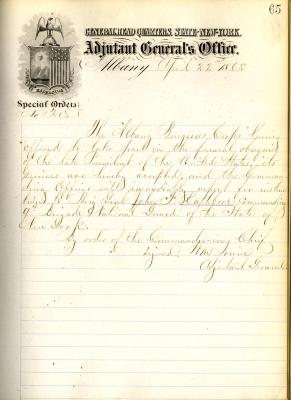 65
GENERAL HEAD QUARTERS, STATE OF NEW-YORK,
Adjutant General's Office,
Albany April 22d 1865
Special Orders
No
The Albany Burgesses Corps having
offered to take part in the funeral obsequies
of the late President of the United States, its
services are hereby accepted, and the Comman-
ding Officer will immediately report for instruc-
tions to Brig Genl John F. Rathbone, Commanding
9th Brigade National Guard of the State of
New York.
By order of the Commander-in-Chief
Signed,
Adjutant General